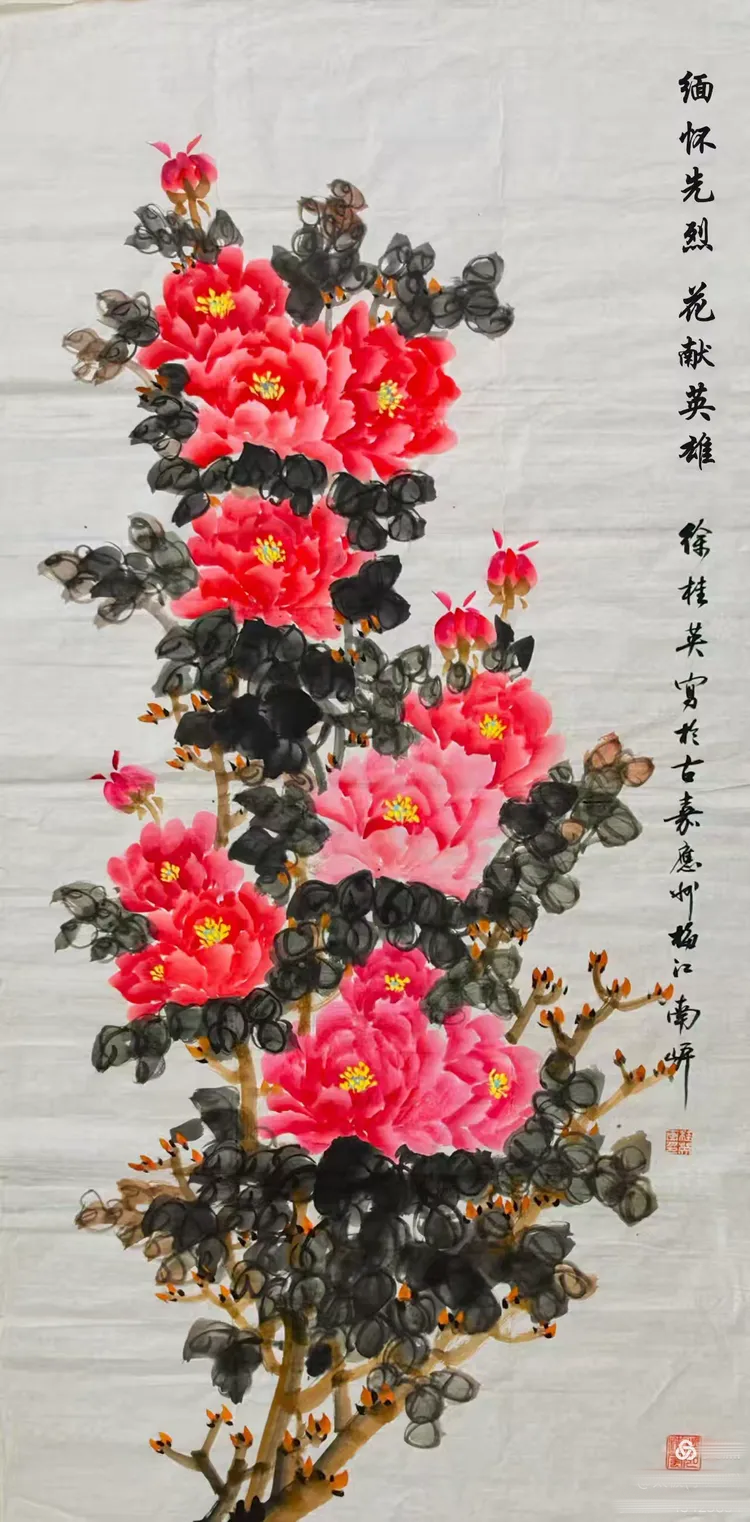 缅怀先烈 花献英雄 徐桂英写于古嘉应州梅江南岸